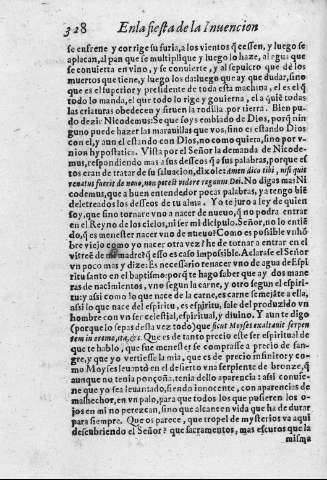 328 En la fiesta de la Inuencion
se enfrene y corrige su furia, a los vientos q̃ cessen, y luego se
aplacan, al pan que se multiplique y luego lo haze, al agua que
se conuierta en vino, y se conuierte, y al sepulcro que dé los
muertos que tiene, y luego los da: luego que ay que dudar, sino
que es el superior y presidente de toda esta machina, el es el q̃
todo lo manda, el que todo lo rige y gouierna, el a quiẽ todas
las criaturas obedecen y siruen la rodilla por tierra. Bien pu-
do dezir Nicodemus: Se que soys embiado de Dios, porq̃ nin
guno puede hazer las marauillas que vos, sino es estando Dios
con el, y aun el estando con Dios, no como quiera, sino por v-
nion hypostatica. Vista por el Señor la demanda de Nicode-
mus, respondiendo mas a sus desseos q̃ a sus palabras, porque es
tos eran de tratar de su saluacion, dixole: Amen dico tibi, nisi quis
renatus fuerit de nouo, non potest videre regnum Dei. No digas mas Ni
codemus, que a buen entendedor pocas palabras, ya tengo biẽ
deletreados los desseos de tu alma. Yo te juro a ley de quien
soy, que sino tornare vno a nacer de nueuo, q̃ no podra entrar
en el Reyno de los cielos, ni ser mi dicipulo. Señor, no lo entiẽ
do, q̃ es menester nacer vno de nueuo? Como es possible vn hõ
bre viejo como yo nacer otra vez? he de tornar a entrar en el
vientre de mi madre? q̃ esso es caso impossible. Aclarase el Señor
vn poco mas y dize: Es necessario renacer vno de agua de Espi
ritu santo en el baptismo: porq̃ te hago saber que ay dos mane
ras de nacimientos, vno segun la carne, y otro segun el espiri-
tu: y assi como lo que nace de la carne, es carne semejãte a ella,
assi lo que nace del espiritu, es espiritu, sale del produzido vn
hombre con vn ser celestial, espiritual, y diuino. Y aun te digo
(porque lo sepas desta vez todo) que sicut Moyses exaltauit serpen
tem in eremo, ita, &c. Que es de tanto precio este ser espiritual de
que te hablo, que fue menester se comprasse a precio de san-
gre, y que yo vertiesse la mia, que es de precio infinito: y co-
mo Moyses leuantò en el desierto vna serpente de bronze, q̃
aunque no tenia ponçoña, tenia dello aparencia: assi conuie-
ne que yo sea leuantado, siendo innocente, con aparencias de
malhechor, en vn palo, para que todos los que pusieren los o-
jos en mi no perezcan, sino que alcancen vida que ha de durar
para siempre. Que os parece, que tropel de mysterios va aqui
descubriendo el Señor? que sacramentos, mas escuros que la
misma